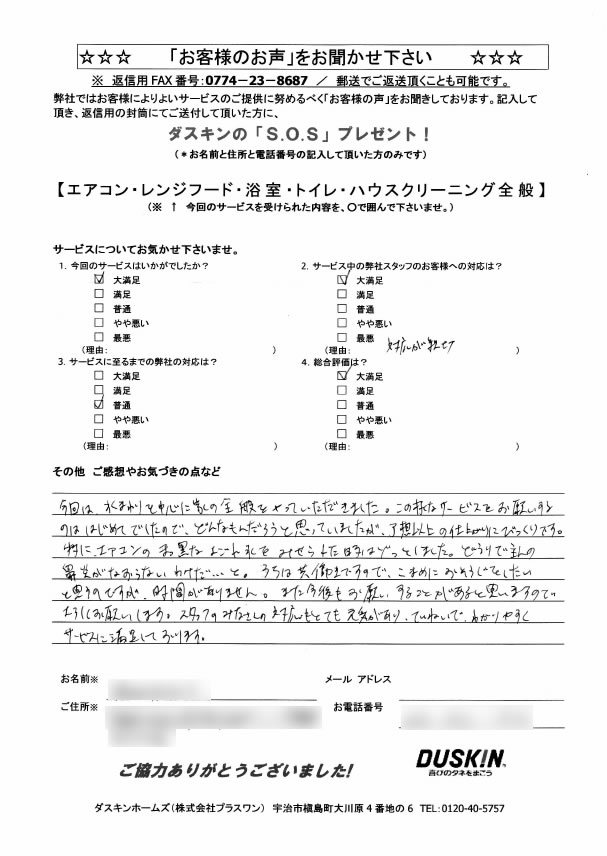 ☆☆☆ 「お客様のお声」をお聞かせ下さい ☆☆☆
※ 返信用FAX番号:0774-23-8687 / 郵送でご返送頂くことも可能です。
弊社ではお客様によりよいサービスのご提供に努めるべく「お客様の声」をお聞きしております。記入して
頂き、返信用の封筒にてご送付して頂いた方に、
ダスキンの「S.O.S」プレゼント!
(*お名前と住所と電話番号の記入して頂いた方のみです)
【エアコン・レンジフード・浴室・トイレ・ハウスクリーニング全般】
(※ ↑ 今回のサービスを受けられた内容を、〇で囲んで下さいませ。)
サービスについてお気かせ下さいませ。
1. 今回のサービスはいかがでしたか?
☑ 大満足
□ 満足
□ 普通
□ やや悪い
□ 最悪
(理由: )
2. サービス中の弊社スタッフのお客様への対応は?
☑ 大満足
□ 満足
□ 普通
□ やや悪い
□ 最悪
(理由: 対応が親切 )
3. サービスに至るまでの弊社の対応は?
□ 大満足
□ 満足
☑ 普通
□ やや悪い
□ 最悪
(理由: )
4. 総合評価は?
☑ 大満足
□ 満足
□ 普通
□ やや悪い
□ 最悪
(理由: )
その他 ご感想やお気づきの点など
今回は、水まわりを中心に家の全般をやっていただきました。この様なサービスをお願いする
のははじめてでしたので、どんなもんだろうと思っていましたが、予想以上の仕上がりにびっくりです。
特に、エアコンの真黒なよごれをみせられた時はぞっとしました。どうりで主人の
鼻炎がなおらないわけだ…と。うちは共働きですので、こまめにおそうじをしたい
と思うのですが、時間がありません。また今後もお願いすることがあると思いますので
よろしくお願いします。スタッフのみなさんの対応もとても元気があり、ていねいで、わかりやすく
サービスに満足しております。
お名前※
メール アドレス
ご住所※
お電話番号
ご協力ありがとうございました!
DUSKIN
喜びのタネをまこう
ダスキンホームズ(株式会社プラスワン) 宇治市槇島町大川原4番地の6 TEL:0120-40-5757